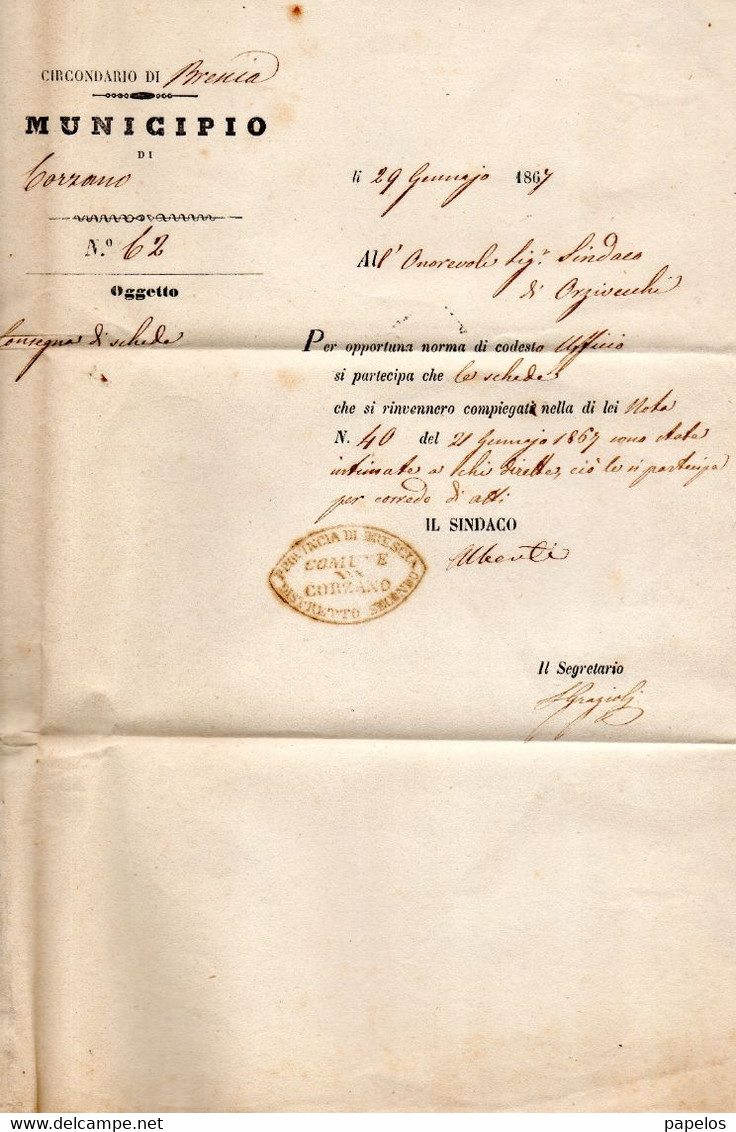 CIRCONDARIO DI Brescia
MUNICIPIO
DI
Corzano
N.º 62
Oggetto
Consegna di schede
li 29 Gennajo 1867
All' Onorevole Sig.r Sindaco
di Orzivecchi
Per opportuna norma di codesto Ufficio
si partecipa che le schede
che si rinvennero compiegate nella di lei Nota
N. 40 del 21 Gennajo 1867 sono state
intimate a chi dirette, ciò le si partecipa
per corredo di atti
IL SINDACO
PROVINCIA DI BRESCIA
COMUNE
DI
CORZANO
DISTRETTO
Il Segretario
Grazioli
papelos